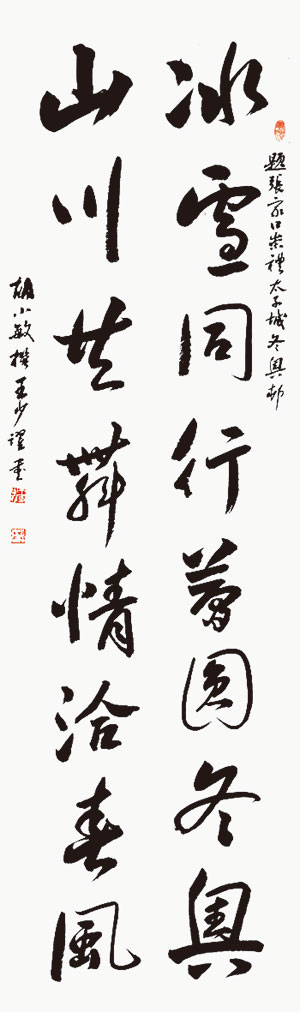 題張家口崇禮太子城冬奧邨
冰雪同行夢圓冬奧
山川共舞情洽春風
胡小敏撰王少書